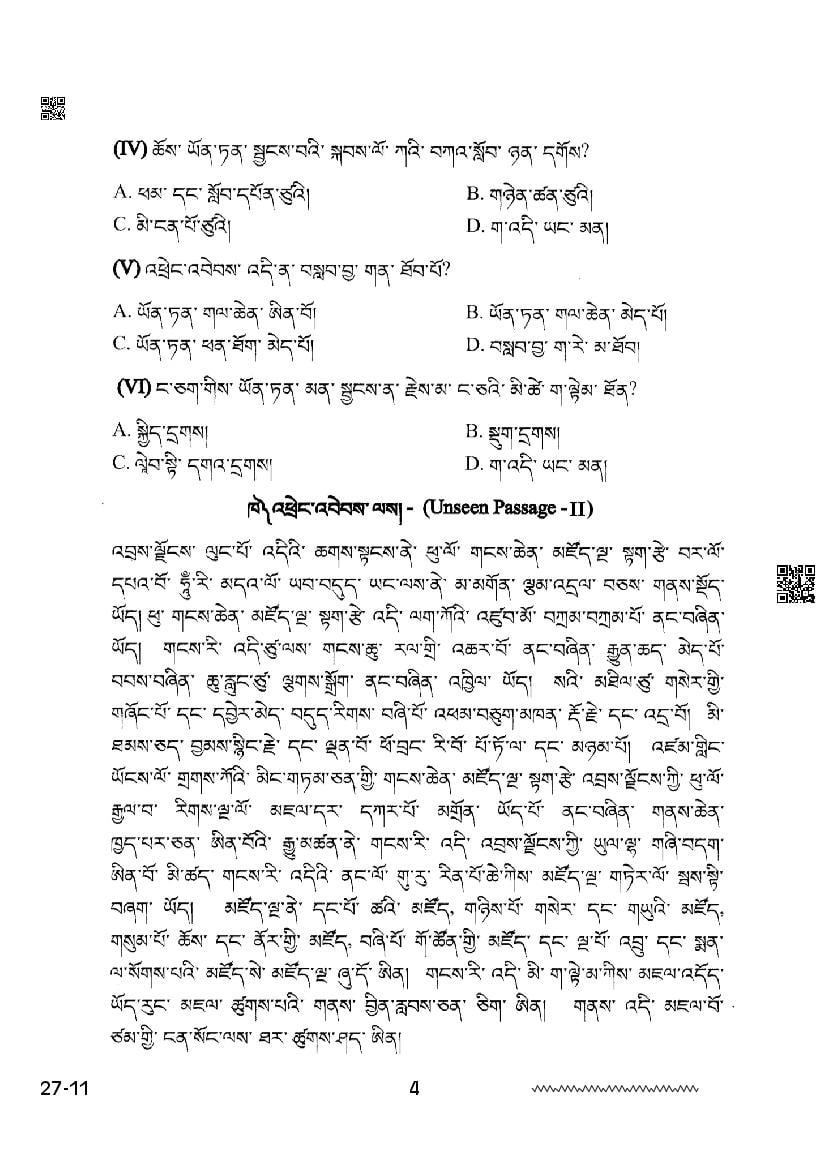 (IV) ཆོས་ ཡོན་ཏན་ སྦྱངས་བའི་ སྐབས་ལོ་ ཀའི་ བཀའ་སློབ་ ཉན་ དགོས?
A. ཕམ་ དང་ སློབ་དཔོན་ཙུའི།
B. གཉེན་ཚན་ཙུའི།
C. མི་ངན་པོ་ཙུའི།
D. ག་འདི་ ཡང་ མན།
(V) འཕྲེང་འབེབས་ འདི་ན་ བསླབ་བྱ་ གན་ ཐོབ་པོ?
A. ཡོན་ཏན་ གལ་ཆེན་ ཨིན་བོ།
B. ཡོན་ཏན་ གལ་ཆེན་ མེད་པོ།
C. ཡོན་ཏན་ ཕན་ཐོག་ མེད་པོ།
D. བསླབ་བྱ་ ག་རེ་ མ་ཐོབ།
(VI) ང་ཅག་གིས་ ཡོན་ཏན་ མན་ སྦྱངས་ན་ རྗེས་མ་ ང་ཅའི་ མི་ཚེ་ ག་ལྟེམ་ ཐོན?
A. སྐྱིད་དྲགས།
B. སྡུག་དྲགས།
C. ལྷེབ་སྟི་ དགའ་དྲགས།
D. ག་འདི་ ཡང་ མན།
ཁ༽ འཕྲེང་འབེབས་ ལས། - (Unseen Passage -II)
འབྲས་ལྗོངས་ ལུང་པོ་ འདིའི་ ཆགས་སྟངས་ནེ་ ཕུ་ལོ་ གངས་ཆེན་ མཛོད་ལྔ་ སྟག་རྩེ་ བར་ལོ་
དཔའ་བོ་ ཧཱུྃ་རི་ མདའ་ལོ་ ཡབ་བདུད་ ཡང་ལས་ནེ་ མ་མགོན་ ལྕམ་འདྲལ་ བཅས་ གནས་སྡོད་
ཡོད། ཕུ་ གངས་ཆེན་ མཛོད་ལྔ་ སྟག་རྩེ་ འདི་ ལག་ཀོའི་ འཛུབ་མོ་ བཀྲམ་བཀྲམ་པོ་ ནང་བཞིན་
ཡོད། གངས་རི་ འདི་ཙུ་ལས་ གངས་ཆུ་ རལ་གྲི་ འཆར་བོ་ ནང་བཞིན་ རྒྱུན་ཆད་ མེད་པོ་
བབས་བཞིན་ ཆུ་རླུང་ཙུ་ ལྕགས་སྒྲོག་ ནང་བཞིན་ འཁྱིལ་ ཡོད། སའི་ མཐིལ་ཙུ་ གསེར་གྱི་
གཞོང་པོ་ དང་ དབྱེར་མེད་ བདུད་རིགས་ བཞི་པོ་ འཕམ་བཅུག་མཁན་ རྡོ་རྗེ་ དང་ འདྲ་བོ། མི་
ཐམས་ཅད་ བྱམས་སྙིང་རྗེ་ དང་ ལྡན་བོ་ ཕོ་བྲང་ རི་བོ་ པོ་ཏོ་ལ་ དང་ མཉམ་པོ། འཛམ་གླིང་
ཡོངས་ལོ་ གྲགས་ཀོའི་ མིང་གཏམ་ཅན་གྱི་ གངས་ཆེན་ མཛོད་ལྔ་ སྟག་རྩེ་ འབྲས་ལྗོངས་ཀྱི་ ཕུ་ལོ་
རྒྱལ་བ་ རིགས་ལྔ་ལོ་ མཇལ་དར་ དཀར་པོ་ མགྲོན་ ཡོད་པོ་ ནང་བཞིན་ གནས་ཆེན་
ཁྱད་པར་ཅན་ ཨིན་བོའི་ རྒྱུ་མཚན་ནེ་ གངས་རི་ འདི་ འབྲས་ལྗོངས་ཀྱི་ ཡུལ་ལྷ་ གཞི་བདག་
ཨིན་བོ་ མི་ཚད་ གངས་རི་ འདིའི་ ནང་ལོ་ གུ་རུ་ རིན་པོ་ཆེ་ཀིས་ མཛོད་ལྔ་ གཏེར་ལོ་ སྦས་སྟི་
བཞག་ ཡོད། མཛོད་ལྔ་ནེ་ དང་པོ་ ཚའི་ མཛོད, གཉིས་པོ་ གསེར་ དང་ གཡུའི་ མཛོད,
གསུམ་པོ་ ཆོས་ དང་ ནོར་གྱི་ མཛོད, བཞི་པོ་ གོ་ཚོན་གྱི་ མཛོད་ དང་ ལྔ་པོ་ འབྲུ་ དང་ སྨན་
ལ་སོགས་པའི་ མཛོད་སེ་ མཛོད་ལྔ་ ཞུ་དོ་ ཨིན། གངས་རི་ འདི་ མི་ ག་ལྟེ་མ་ཀིས་ མཇལ་འདོད་
ཡོད་རུང་ མཇལ་ ཚུགས་པའི་ གནས་ བྱིན་རླབས་ཅན་ ཅིག་ ཨིན། གནས་ འདི་ མཇལ་བོ་
ཙམ་གྱི་ ངན་སོང་ལས་ ཐར་ ཚུགས་ཤད་ ཨིན།
27-11
4